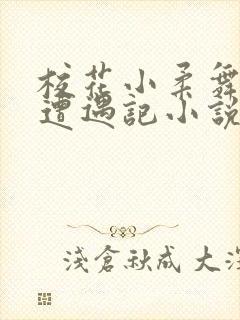 校花小柔舞
遭遇记小說
淺倉秋成 大深